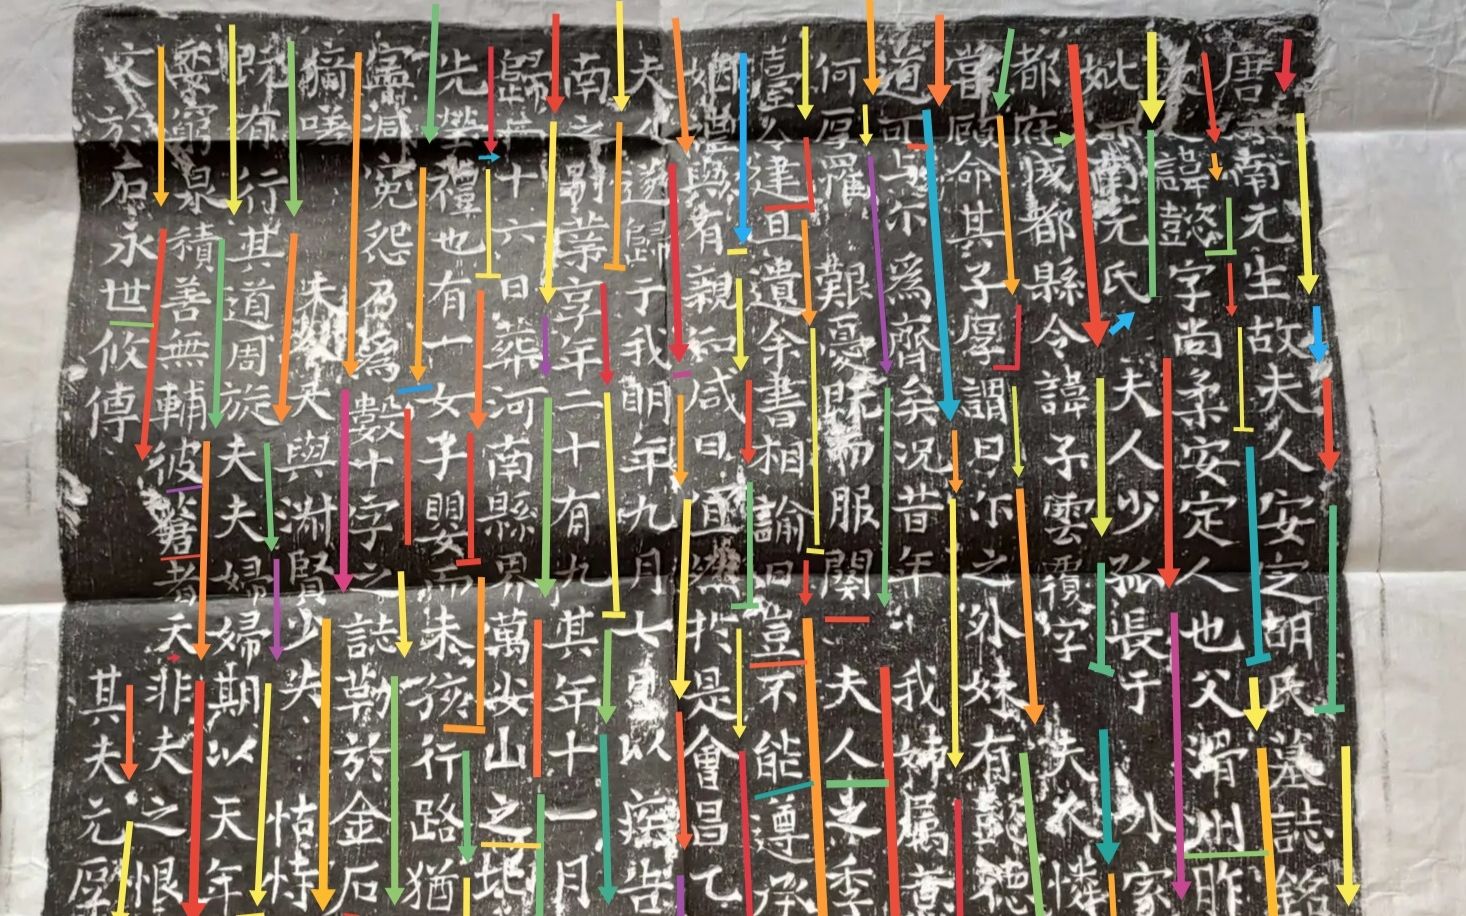 唐南元生故夫人安定胡氏墓誌銘
諱懿字尚柔安定人也父滑州胙
妣南元氏夫人少孤長于外家
都府成都縣令諱子雲夫人憐
當顧命其子厚謂曰尓之外妹有懿德
道可与尓為齊矣況昔年我姊屬意
何厚罹艱憂既而服闋夫人之季
臺令建且遺余書相諭曰豈不能遵承
姻與有親和咸曰宜然於是會昌乙
夫人遂歸于我明年九月七以疾告
南之別業享年二十有九其年十一月
歸十六日葬河南縣界萬安山之北
先塋禮也有一女子嬰而未孩行路猶
寃怨乃為數十字之誌勒於金石
痛嗟夫與淑賢少失怙恃
既有行其道周旋夫夫婦婦期以天年
委窮泉積善無輔彼蒼者天非夫之恨
文於石永世攸傳其夫元厚